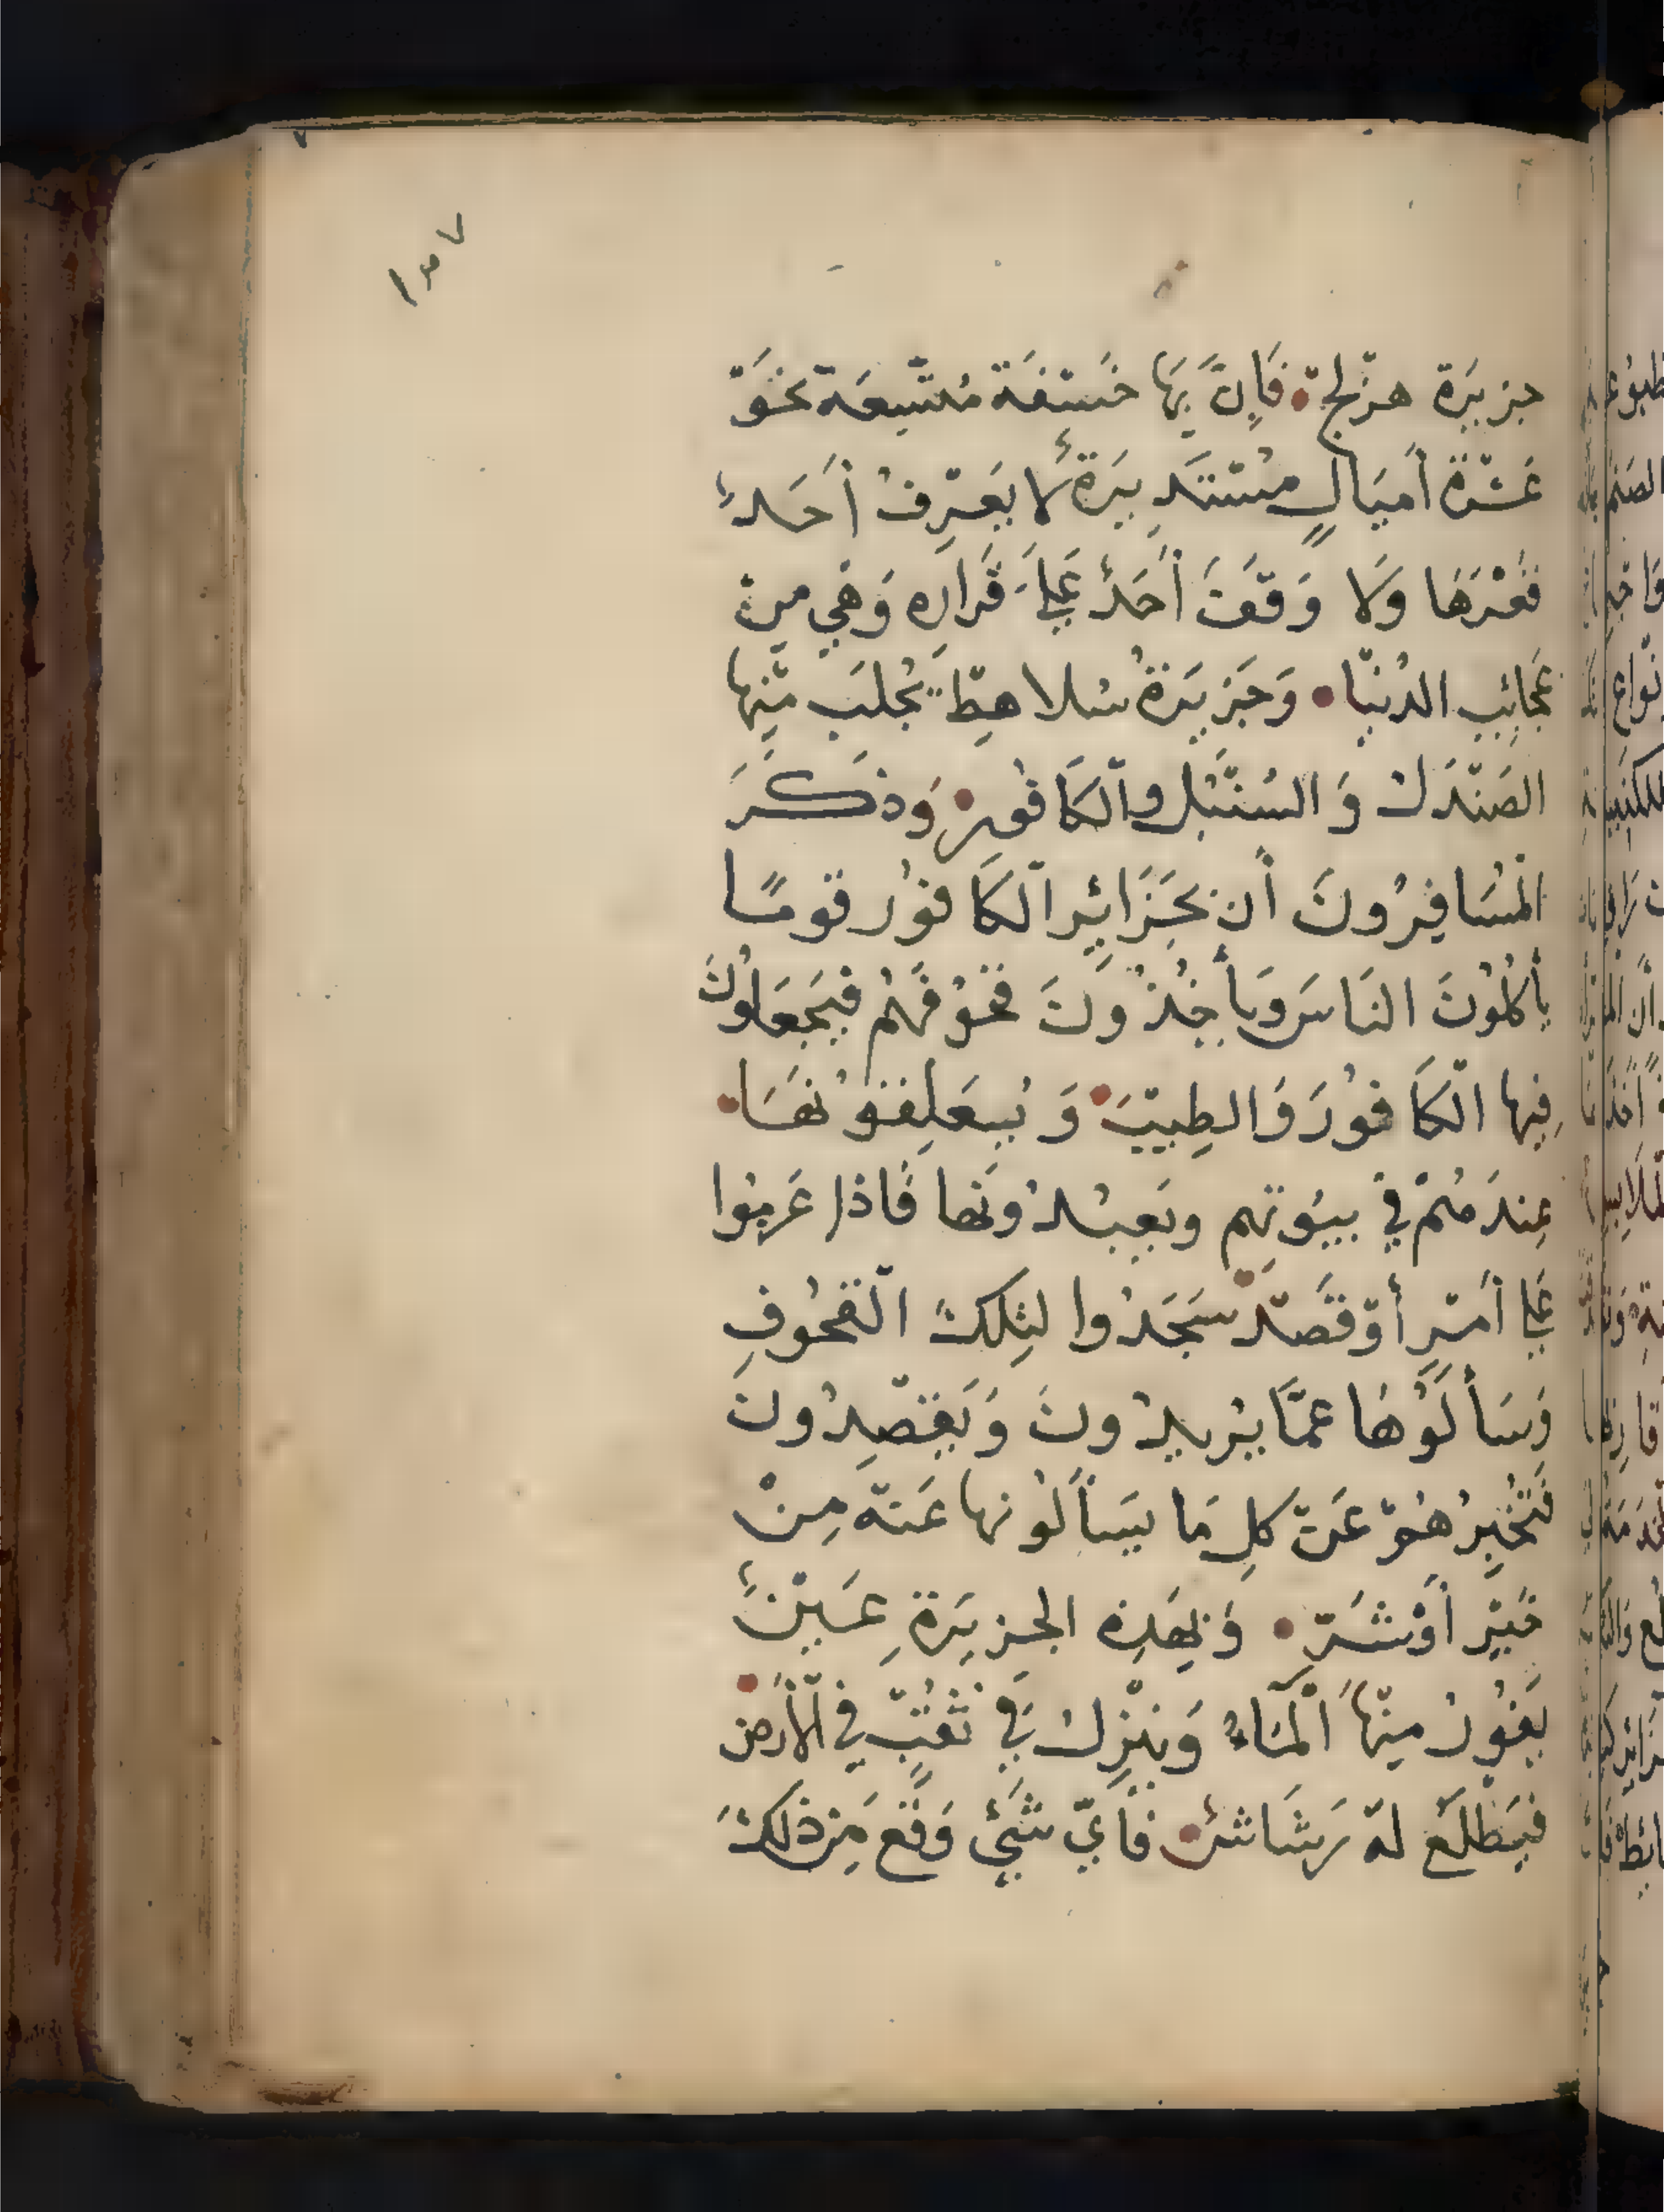 جزيرَة هرْلج فَإِنَّ بِهَا خَسْفَة مُتَّسِعَة نَحْوَ
عَشْرَة أَمْيَالٍ مُسْتَدِيرَةٌ لَا يَعْرِفُ أَحَدٌ
قَعْرَهَا وَلَا وَقَفَ أَحَدٌ عَلَى قَرَارِهِ وَهْيَ مِنْ
عَجَائِبِ الدُنْيَا وَجَزِيرَةُ سُلاهِطْ يُجْلَبُ مِنْهَا
الصَنْدَلُ وَالسُنْبُلُ وَالْكَافُورُ وَذَكَرَ
الْمُسَافِرُونَ أَن بَجَزَائِرِ الْكَافُور قومًا
يَأْكُلُونَ النَاسَ وَيَأْخُذُونَ قَحُوْفَهُمْ فَيَجْعَلُونَ
فِيها الْكَافُورَ وَالطِيبَ وَيُعَلِقُونَهَا
عِندَهُمْ فِي بيُوتِهِم ويَعبُدُونَها فَاذا عَزمُوا
عَلى أَمْرٍ أَوْ قَصْدٍ سَجَدُوا لِتِلكَ الْقحُوفِ
وَسَأَلُوْهَا عمَّا يُريدُونَ وَيَقْصِدُونَ
فَتُخْبِرُهُمْ عَنْ كلِ مَا يَسْأَلُونها عَنْهُ مِنْ
خَيْرٍ أَوْ شَرٍّ وَبِهَذِهِ الجزِيرَةِ عَيْنٌ
يَفُورُ مِنْهَا الْمَاءُ وَيَنْزِلُ فِي ثُقْبٍ فِي الْأَرْضِ
فيَطْلَعُ لهُ رَشَاشٌ فَأَيّ شَيْءٍ وَقَعَ مِن ذلكَ